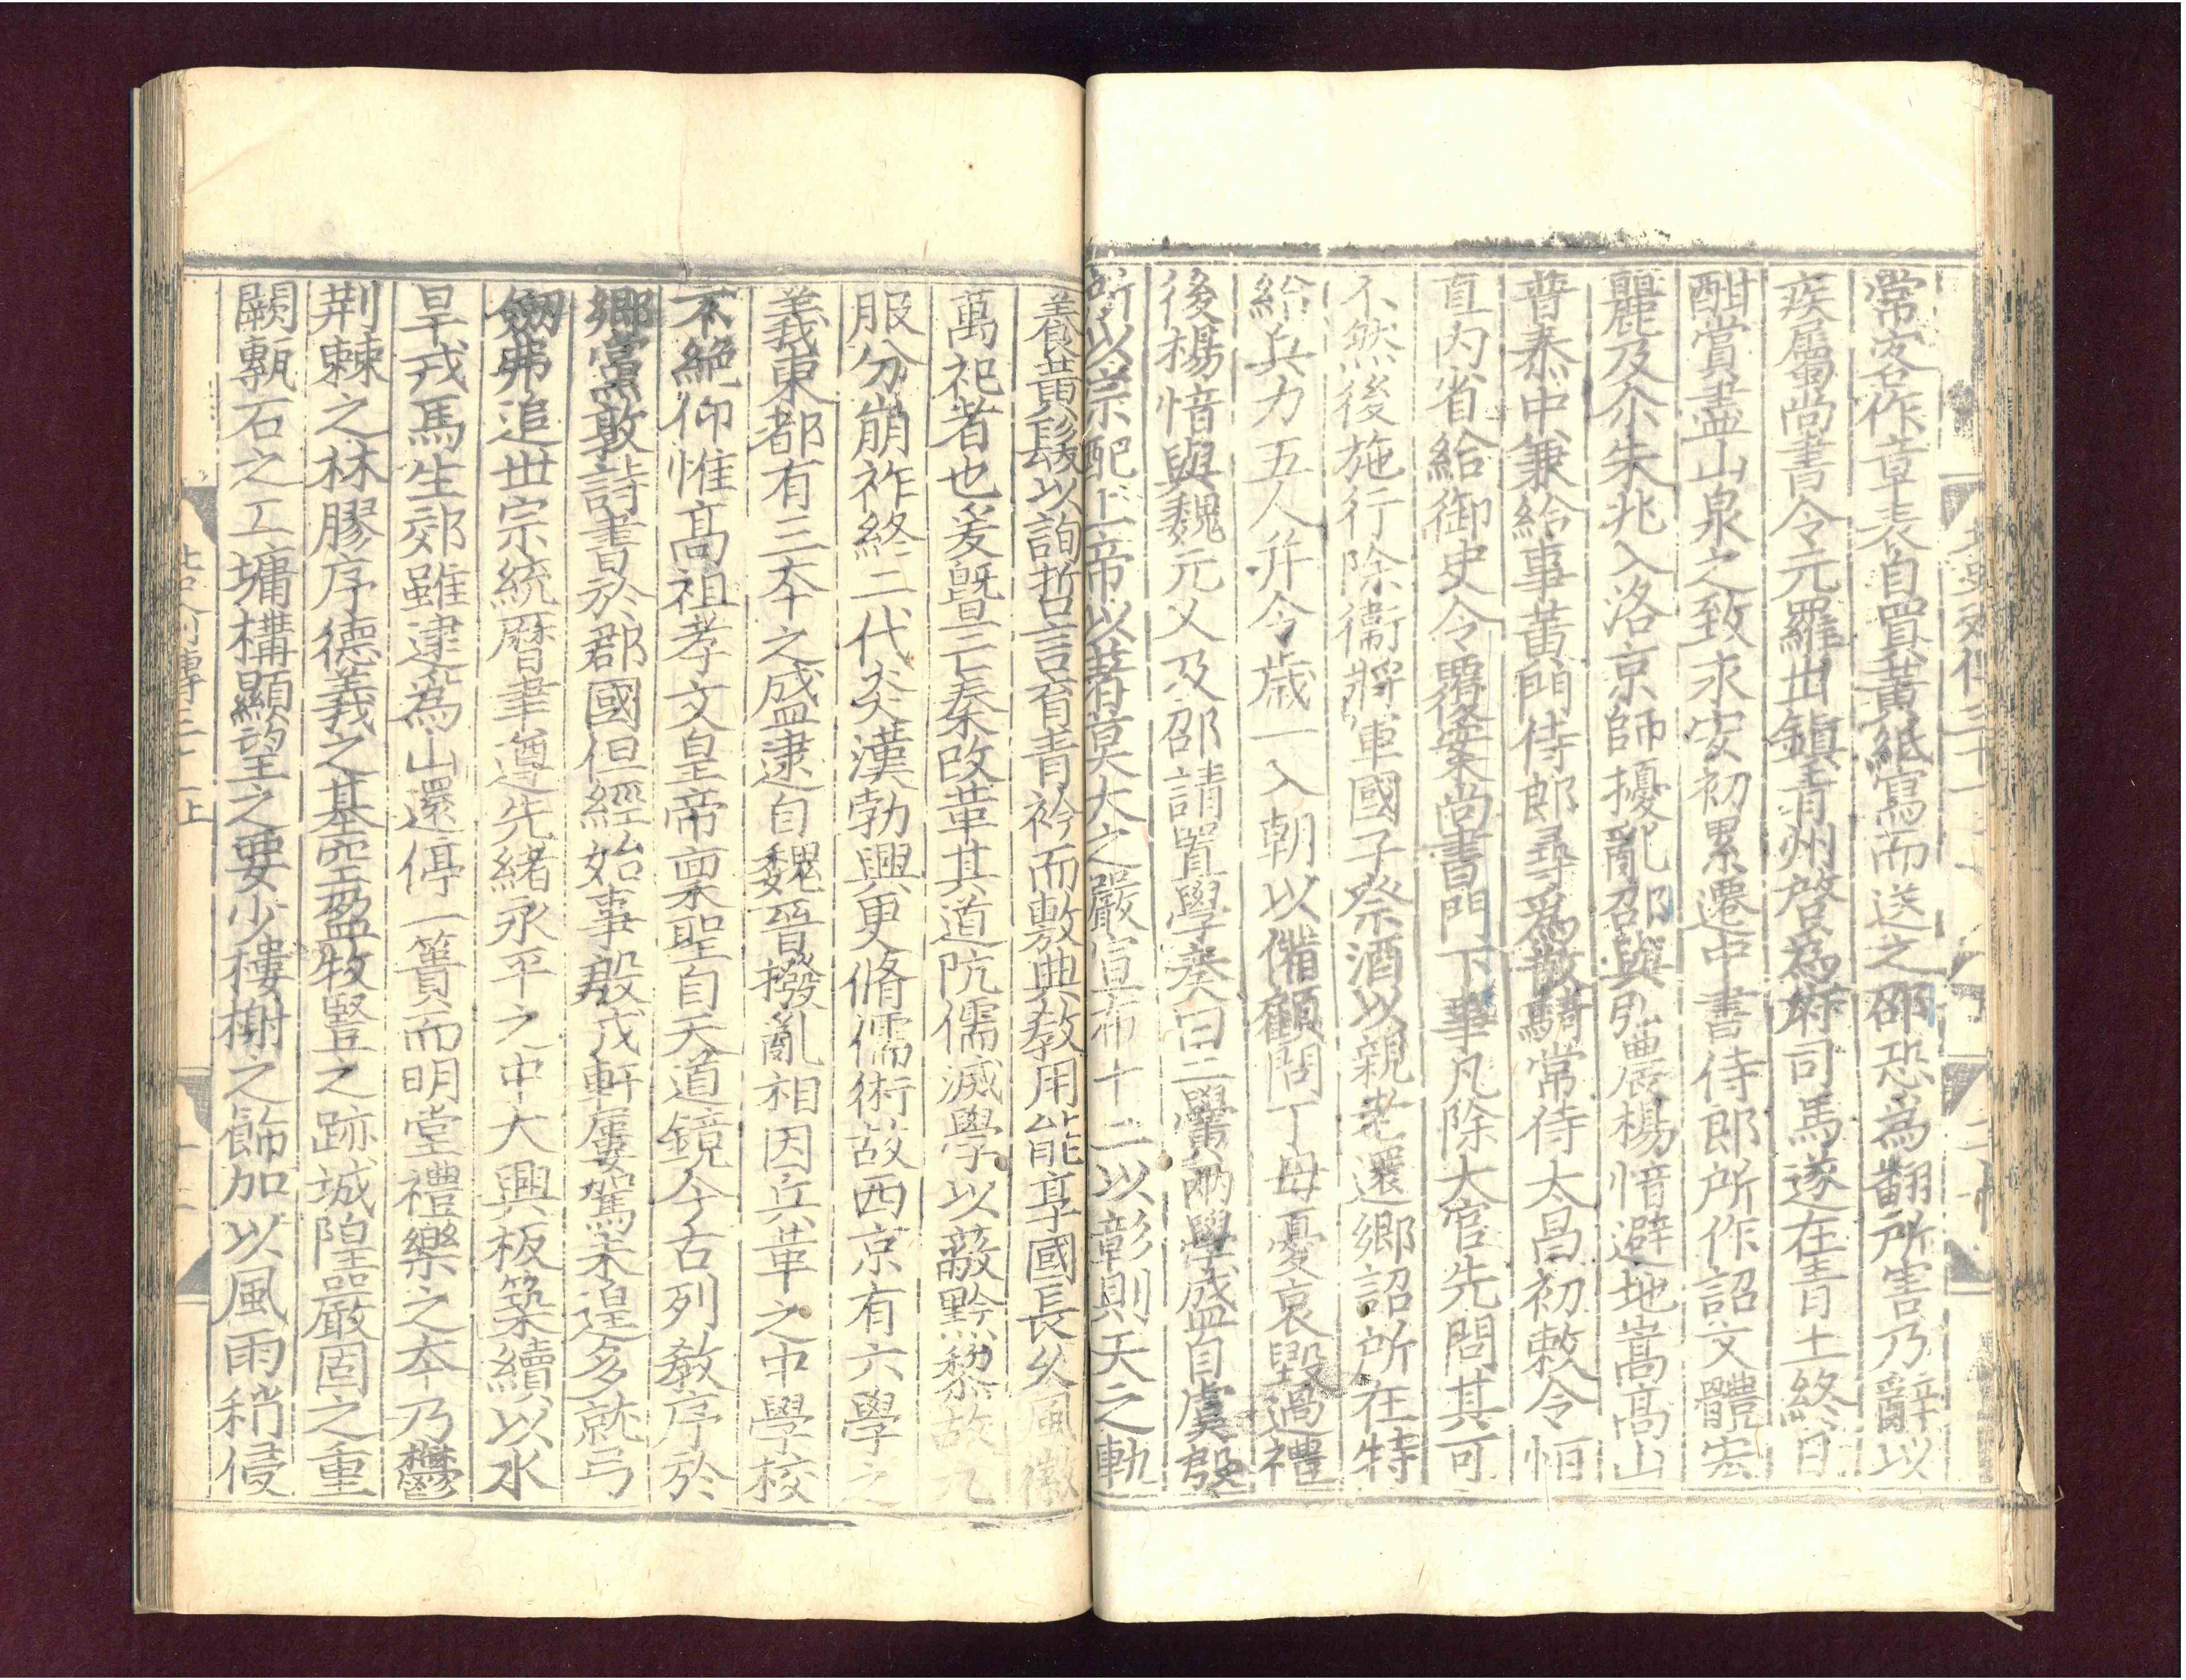 常客作章表自買黃紙寫而送之邵恐為翻所害乃辭以
疾屬尚書令元羅出鎮青州啓為府司馬遂在青土終日
酣賞盡山泉之致永安初累遷中書侍郎所作詔文體宏
麗及尒朱兆入洛京師擾亂邵與弘農楊愔避地嵩高山
普泰中兼給事黃門侍郎尋為散騎常侍太昌初敕令恒
直內省給御史令覆案尚書門下事凡除大官先問其可
不然後施行除衞將軍國子祭酒以親老還鄉詔所在特
給兵力五人并令歲一入朝以備顧問丁母憂哀毀過禮
後楊愔與魏元乂及邵請置學奏曰二黌兩學盛自虞殷
所以宗配上帝以著莫大之嚴宣布十二以彰則天之軌
養黃髮以詢哲言育青衿而敷典敎用能享國長久風徽
萬祀者也爰曁亡秦改革其道阬儒滅學以蔽黔黎故九
服分崩祚終二代炎漢勃興更脩儒術故西京有六學之
義東都有三本之盛逮自魏晉撥亂相因兵革之中學校
不絕仰惟高祖孝文皇帝稟聖自天道鏡今古列敎序於
鄉黨敦詩書於郡國但經始事殷戎軒屢駕未遑多就弓
劒弗追世宗統曆聿遵先緒永平之中大興板築續以水
旱戎馬生郊雖逮為山還停一簣而明堂禮樂之本乃鬱
荆棘之林膠序德義之基空盈牧豎之跡城隍嚴固之重
闕甎石之工墉構顯望之要少樓榭之飾加以風雨稍侵